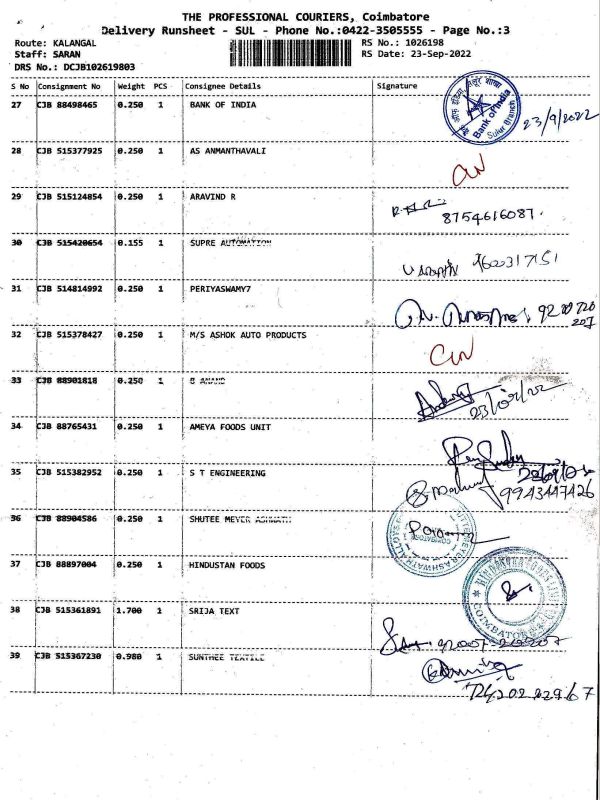 THE PROFESSIONAL COURIERS, Coimbatore
Delivery Runsheet - SUL - Phone No.:0422-3505555 - Page No.:3
Route: KALANGAL RS No.: 1026198
Staff: SARAN RS Date: 23-Sep-2022
DRS No.: DCJB102619803
S No Consignment No Weight PCS Consignee Details Signature
27 CJB 88498465 0.250 1 BANK OF INDIA
Bank of India
Sulur Branch
23/9/2022
28 CJB 515377925 0.250 1 AS ANMANTHAVALI
29 CJB 515124854 0.250 1 ARAVIND R
8754616087.
30 CJB 515420654 0.155 1 SUPRE AUTOMATION
9600317151
31 CJB 514814992 0.250 1 PERIYASWAMY7
32 CJB 515378427 0.250 1 M/S ASHOK AUTO PRODUCTS
33 CJB 88901818 0.250 1 B ANAND
23/09/22
34 CJB 88765431 0.250 1 AMEYA FOODS UNIT
35 CJB 515382952 0.250 1 S T ENGINEERING
9943447426
36 CJB 88904586 0.250 1 SHUTEE MEYER ASHWATH
37 CJB 88897004 0.250 1 HINDUSTAN FOODS
COIMBATORE
38 CJB 515361891 1.700 1 SRIJA TEXT
39 CJB 515367230 0.980 1 SUNTHEE TEXTILE